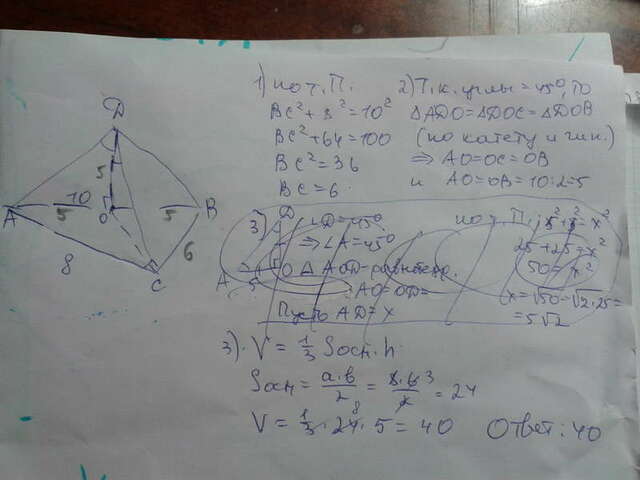 1) по т. П.
BC²+8²=10²
BC²+64=100
BC²=36
BC=6
2) Т.к. углы=45°, то
△ADO=△DOC=△DOB
(по катету и гип.)
⇒ AO=OC=OB
и AO=OB=10:2=5
D
5
10
A
5
O
5
B
8
6
C
3) D
∠D=45°
⇒∠A=45°
A 5 O △AOD-равнобедр.
AO=OD=
Пусть AD=x
по т. П.: 5²+5²=x²
25+25=x²
50=x²
x=√50=√2·25=
=5√2
3). V=1/3 Sосн.·h
Sосн=a·b/2=8·6/2 3=24
V=1/3·24 8·5=40
Ответ: 40